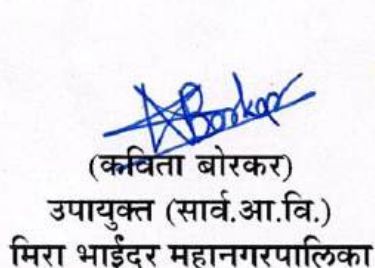 (कविता बोरकर)
उपायुक्त (सार्व.आ.वि.)
मिरा भाईंदर महानगरपालिका